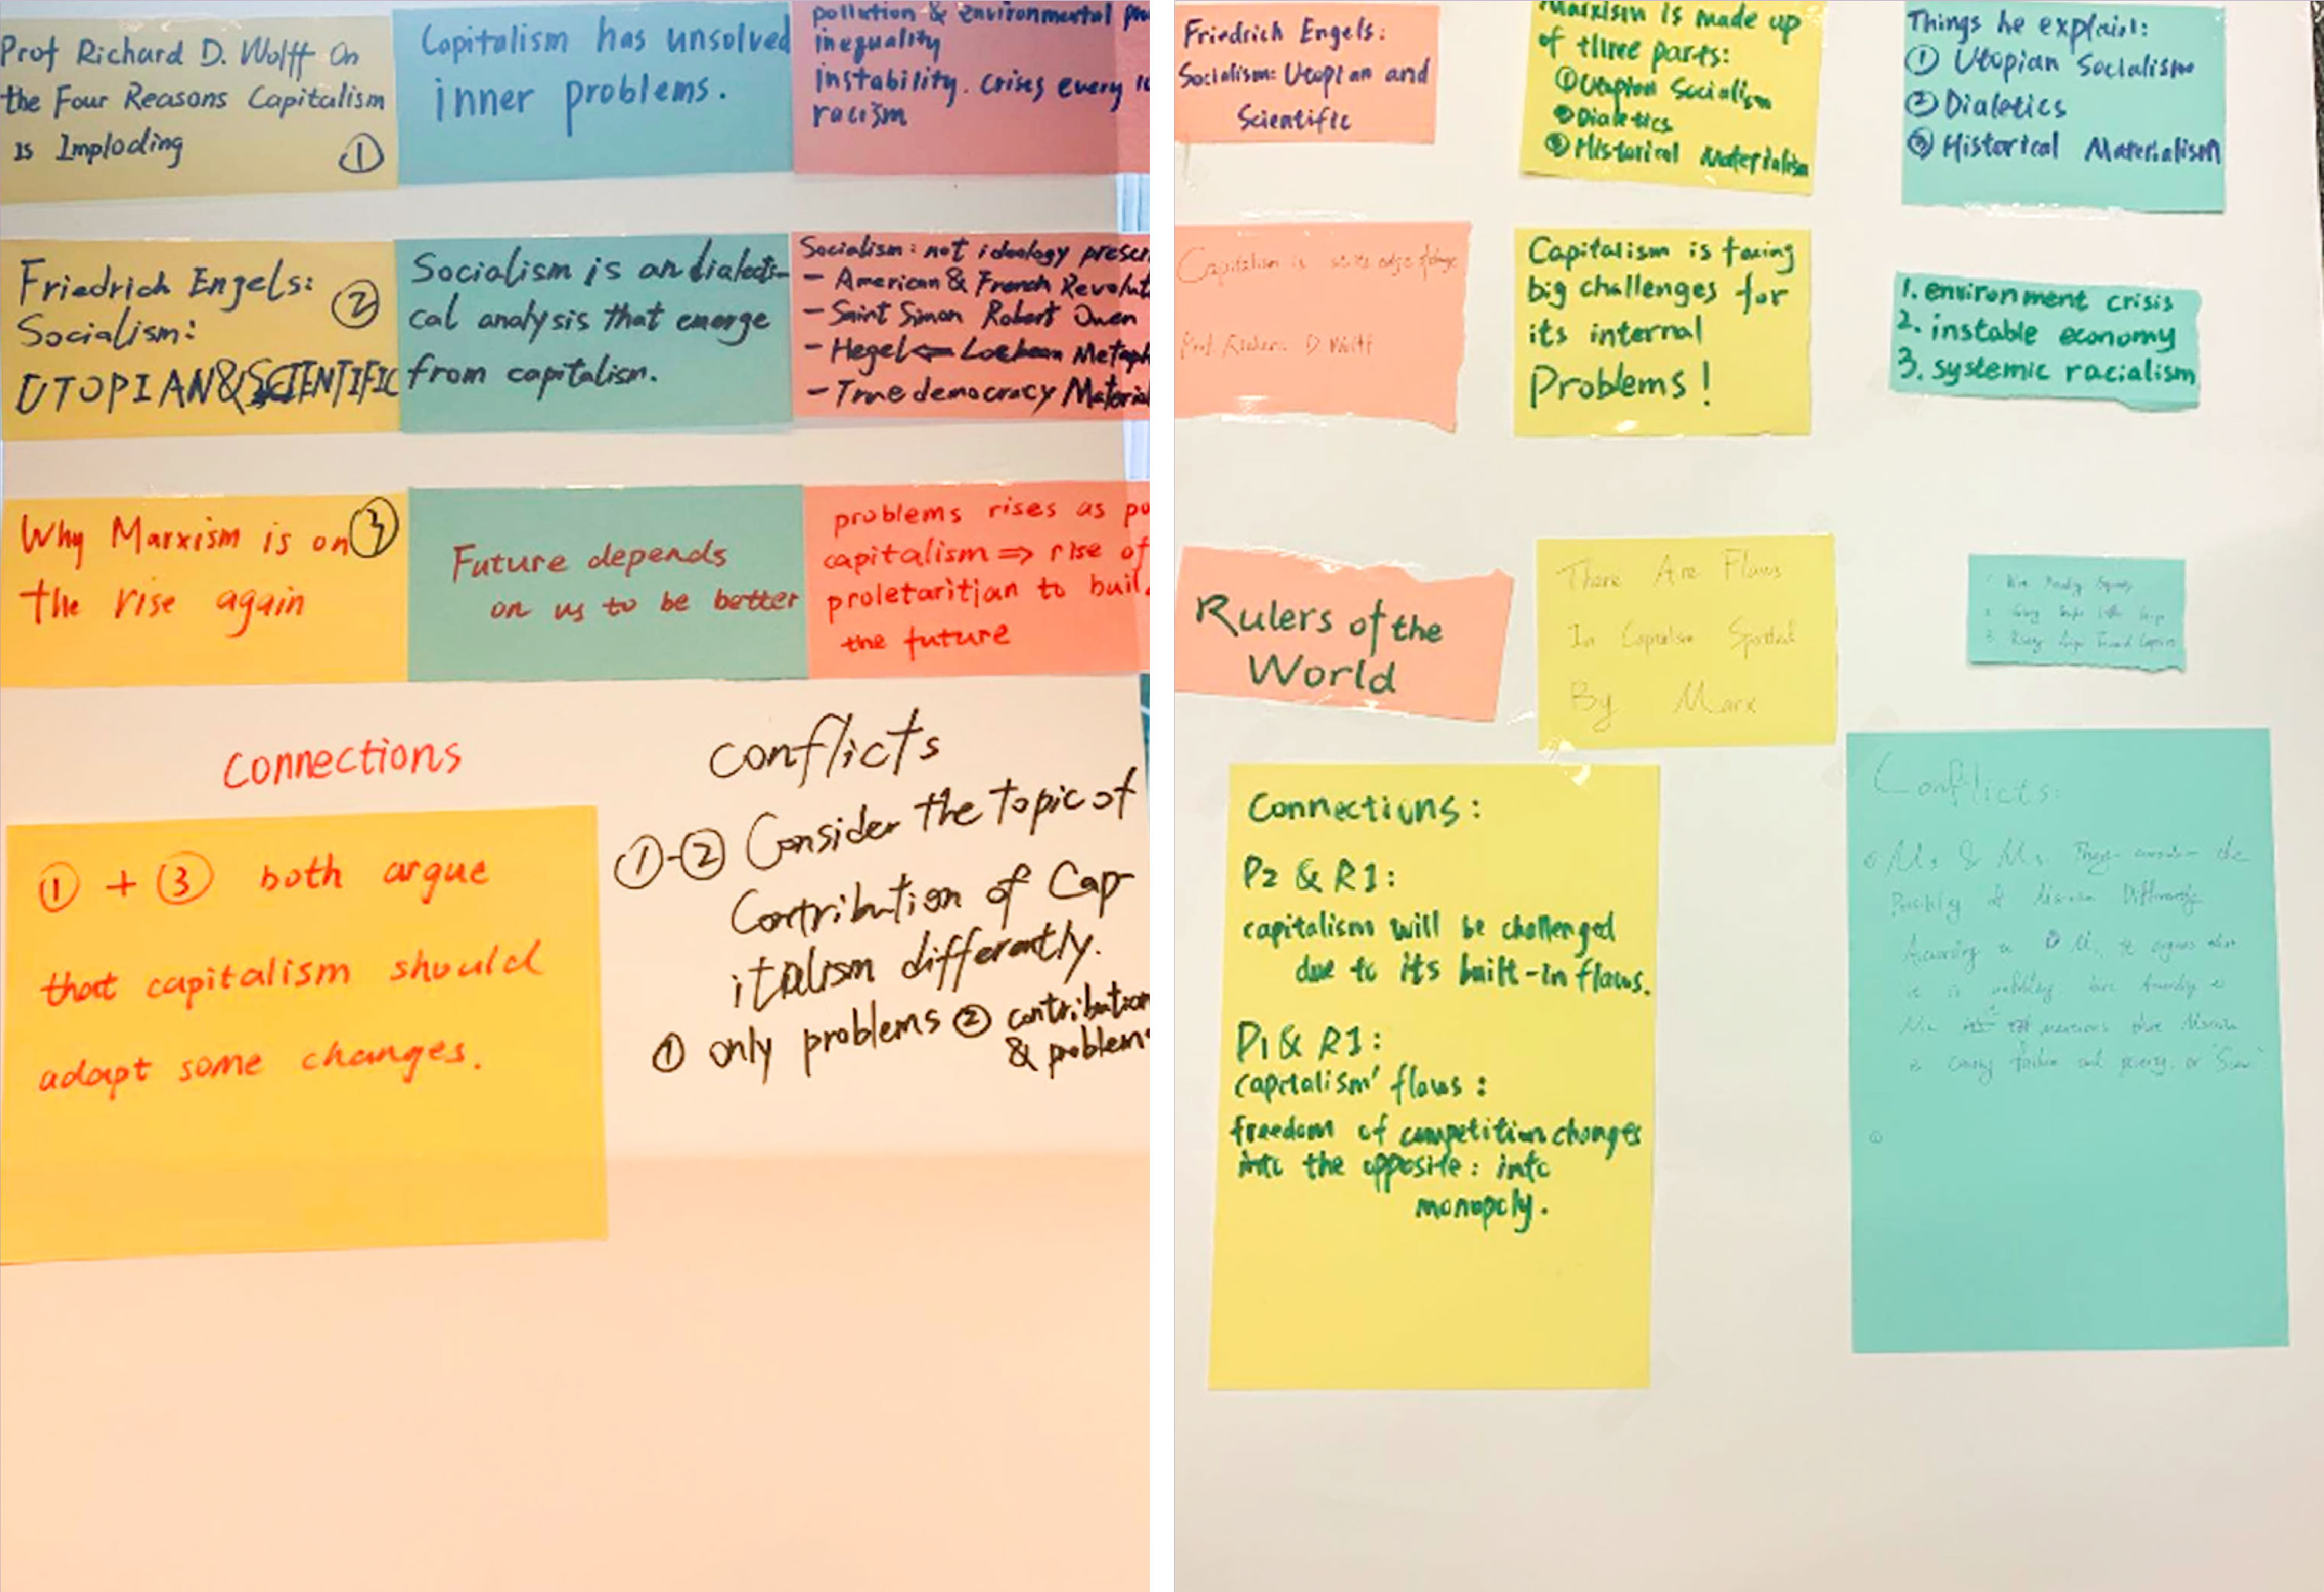 Prof Richard D. Wolff On
the Four Reasons Capitalism
is Imploding ①
Capitalism has unsolved
inner problems.
pollution & environmental
inequality
instability. crises every
racism
Friedrich Engels: ②
Socialism:
UTOPIAN & SCIENTIFIC
Socialism is an dialecti-
cal analysis that emerge
from capitalism.
Socialism: not ideology
- American & French
- Saint Simon Robert Owen
- Hegel ⇐ Lockean
- True democracy
Why Marxism is on ③
the rise again
Future depends
on us to be better
problems rises as
capitalism ⇒ rise of
proletaritian to
the future
Connections
① + ③ both argue
that capitalism should
adapt some changes.
Conflicts
①-② Consider the topic of
Contribution of Cap-
italism differently.
① only problems ② contribution
& problems
Friedrich Engels:
Socialism: Utopian and
Scientific
Marxism is made up
of three parts:
① Utopian Socialism
② Dialetics
③ Historical Materialism
Things he explain:
① Utopian Socialism
② Dialetics
③ Historical Materialism
Capitalism is
Prof. Richard D. Wolff
Capitalism is facing
big challenges for
its internal
Problems!
1. environment crisis
2. instable economy
3. systemic racialism
Rulers of the
World
There Are Flaws
In Capitalism
By Marx
Connections:
P2 & R1:
capitalism will be challenged
due to its built-in flaws.
P1 & R1:
capitalism' flaws:
freedom of competition changes
into the opposite: into
monopoly.
Conflicts: